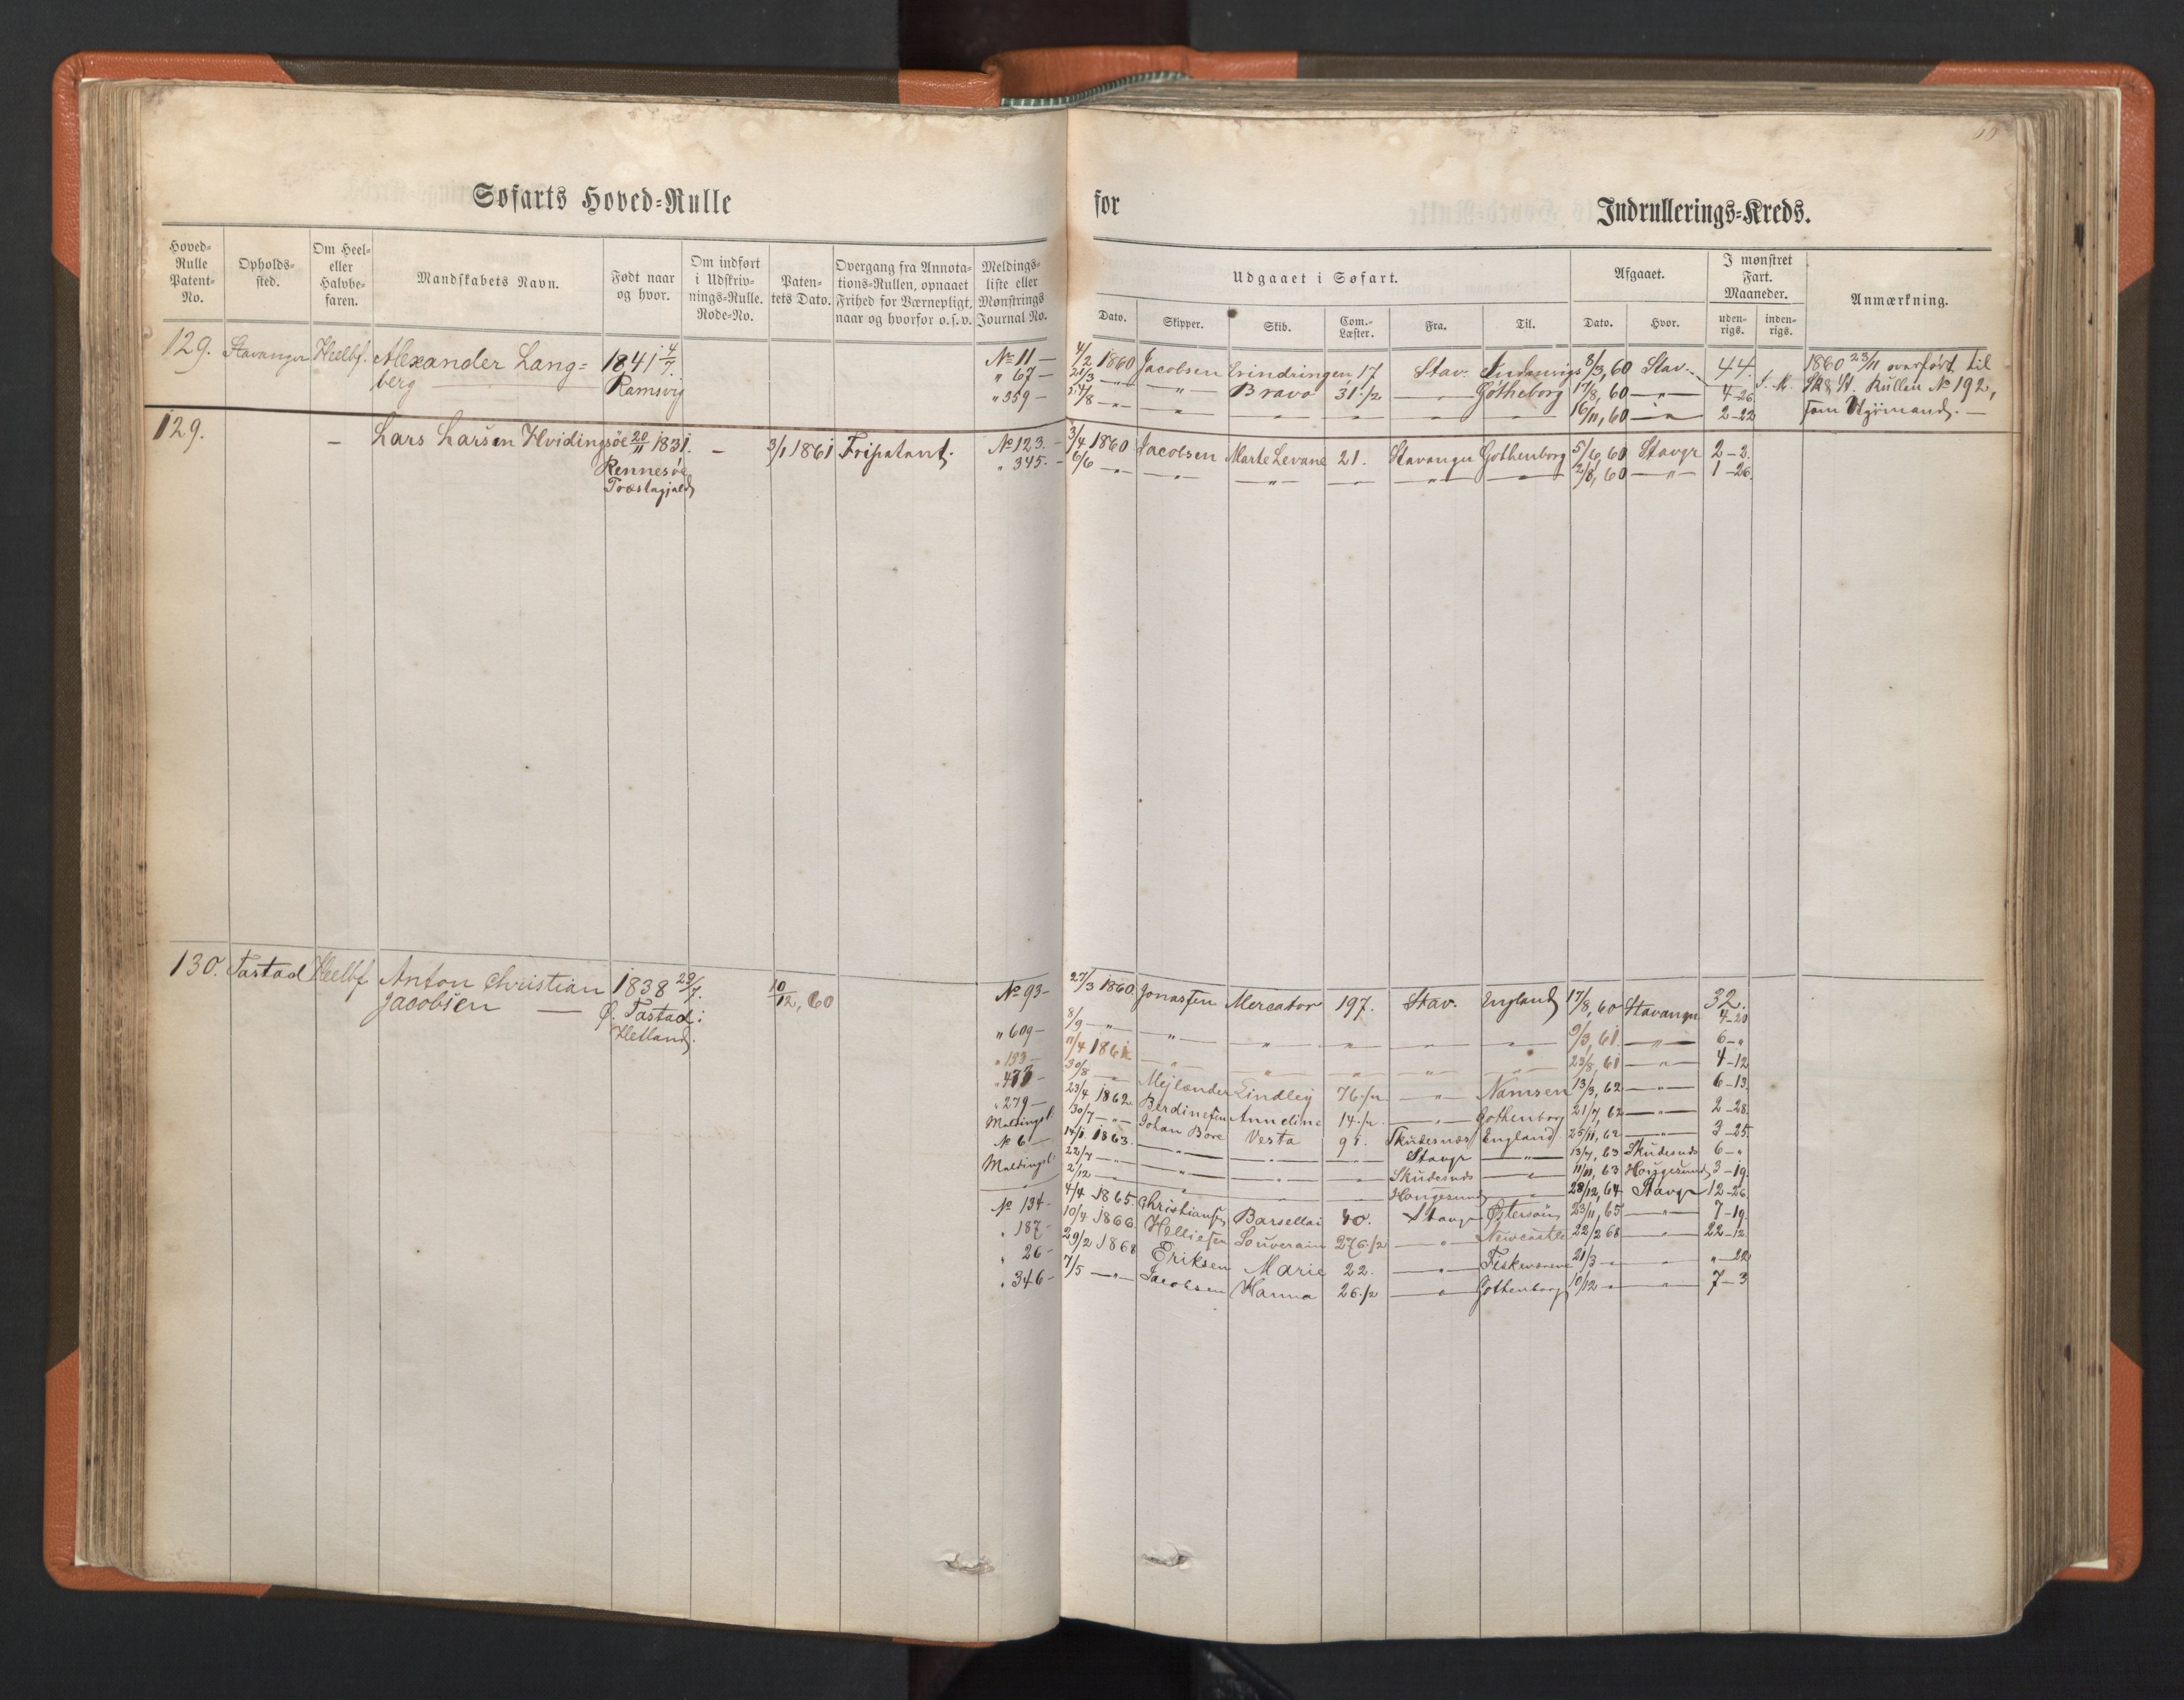 Søfarts Hoved-Rulle
for
Indrullerings-Kreds.
Hoved-Rulle Patent-No.
Opholds-sted.
Om Heel- eller Halvbe-faren.
Mandskabets Navn.
Født naar og hvor.
Om indført i Udskriv-nings-Rulle. Rode-No.
Paten-tets Dato.
Overgang fra Annota-tions-Rullen, opnaaet Frihed for Værnepligt, naar og hvorfor o.s.v.
Meldings-liste eller Mønstrings Journal No.
Udgaaet i Søfart.
Dato. Skipper. Skib. Com.-Læster. Fra. Til.
Afgaaet.
Dato. Hvor.
I mønstret Fart. Maaneder.
uden-rigs. inden-rigs.
Anmærkning.
129. Stavanger Heelbf. Alexander Lang= 1841 4/7. № 11 — 4/2 1860 Jacobsen Erindringen 17 Stav. Indenrigs 8/3, 60 Stav. 44. 1860 23/11 overført til
berg — Ramsvig " 67 — 21/3 — " — Bravo 31 1/2 — " — Gøtheborg 17/8, 60 — " — 4-26 Sk & St. Rullen № 192,
" 359 — /8 — " — 16/11, 60 — " — 2-22 som Styrmand. —
129. — Lars Larsen Hvidingsøe 20/11 1831. — 3/1 1861 Fripatent. № 123. — 3/4 1860 Jacobsen Marte Levane 21. Stavanger Gothenborg 5/6, 60 Stavgr 2-2.
Rennesøe " 345. — 6/6 — " — 2/8, 60 — " — 1-26.
Præstegjeld
130. Tastad Heelbf Anton Christian 1838 29/7. 10/12, 60 № 93 — 27/3 1860. Jonassen Mercator 197. Stav. England 17/8, 60 Stavanger 32.
Jacobsen — Ø. Tastad: 4-20
Hetland. " 609 — 8/9 — " — 9/3, 61. — " — 6-"
" 133 — 11/4 1861 — " — 23/8, 61 — " — 4-12
" 477 — 30/8 — " — Mejlænder Lindley 76 1/2 — " — Namsen 13/3, 62 — " — 6-13
" 279 — 23/4 1862. Berdinesen Anneline 14 1/2 — " — Gothenborg 21/7, 62 — " — 2-28
Meldingsl. 30/7 — " — Johan Bore Vesta 91. Skudesnæs England 25/11, 62 — " — 3-25.
№ 6 — 14/1 1863. — " — Stavgr — " — 13/7, 63 Skudesnæs 6-"
Meldingsl. 22/7 — " — Skudesnæs — " — 11/11, 63 Hougesund 3-19
2/12 — " — Hougesund — " — 28/12, 64 Stavgr 12-26
№ 134 — 4/4 1865. Christiansen Barsellai 40. Stavgr Østersøen 23/11, 65 — " — 7-19
" 187 — 10/4 1866. Helliesen Souverain 276 1/2 — " — Newcastle 22/2 68 — " — 22-12
" 26 — 29/2 1868 Eriksen Marie 22. — " — Fiskeværene 21/3 — " — "-22
" 346 — 7/5 — " — Jacobsen Hanna 26 1/2 — " — Gothenborg 10/12 — " — 7-3